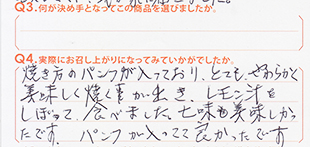 Q3.何が決め手となってこの商品を選びましたか。
Q4.実際にお召し上がりになってみていかがでしたか。
焼き方のパンフが入っており、とても、やわらかく
美味しく焼く事が出き、レモン汁を
しぼって、食べました、七味も美味しかっ
たです。 パンフが入ってて良かったです